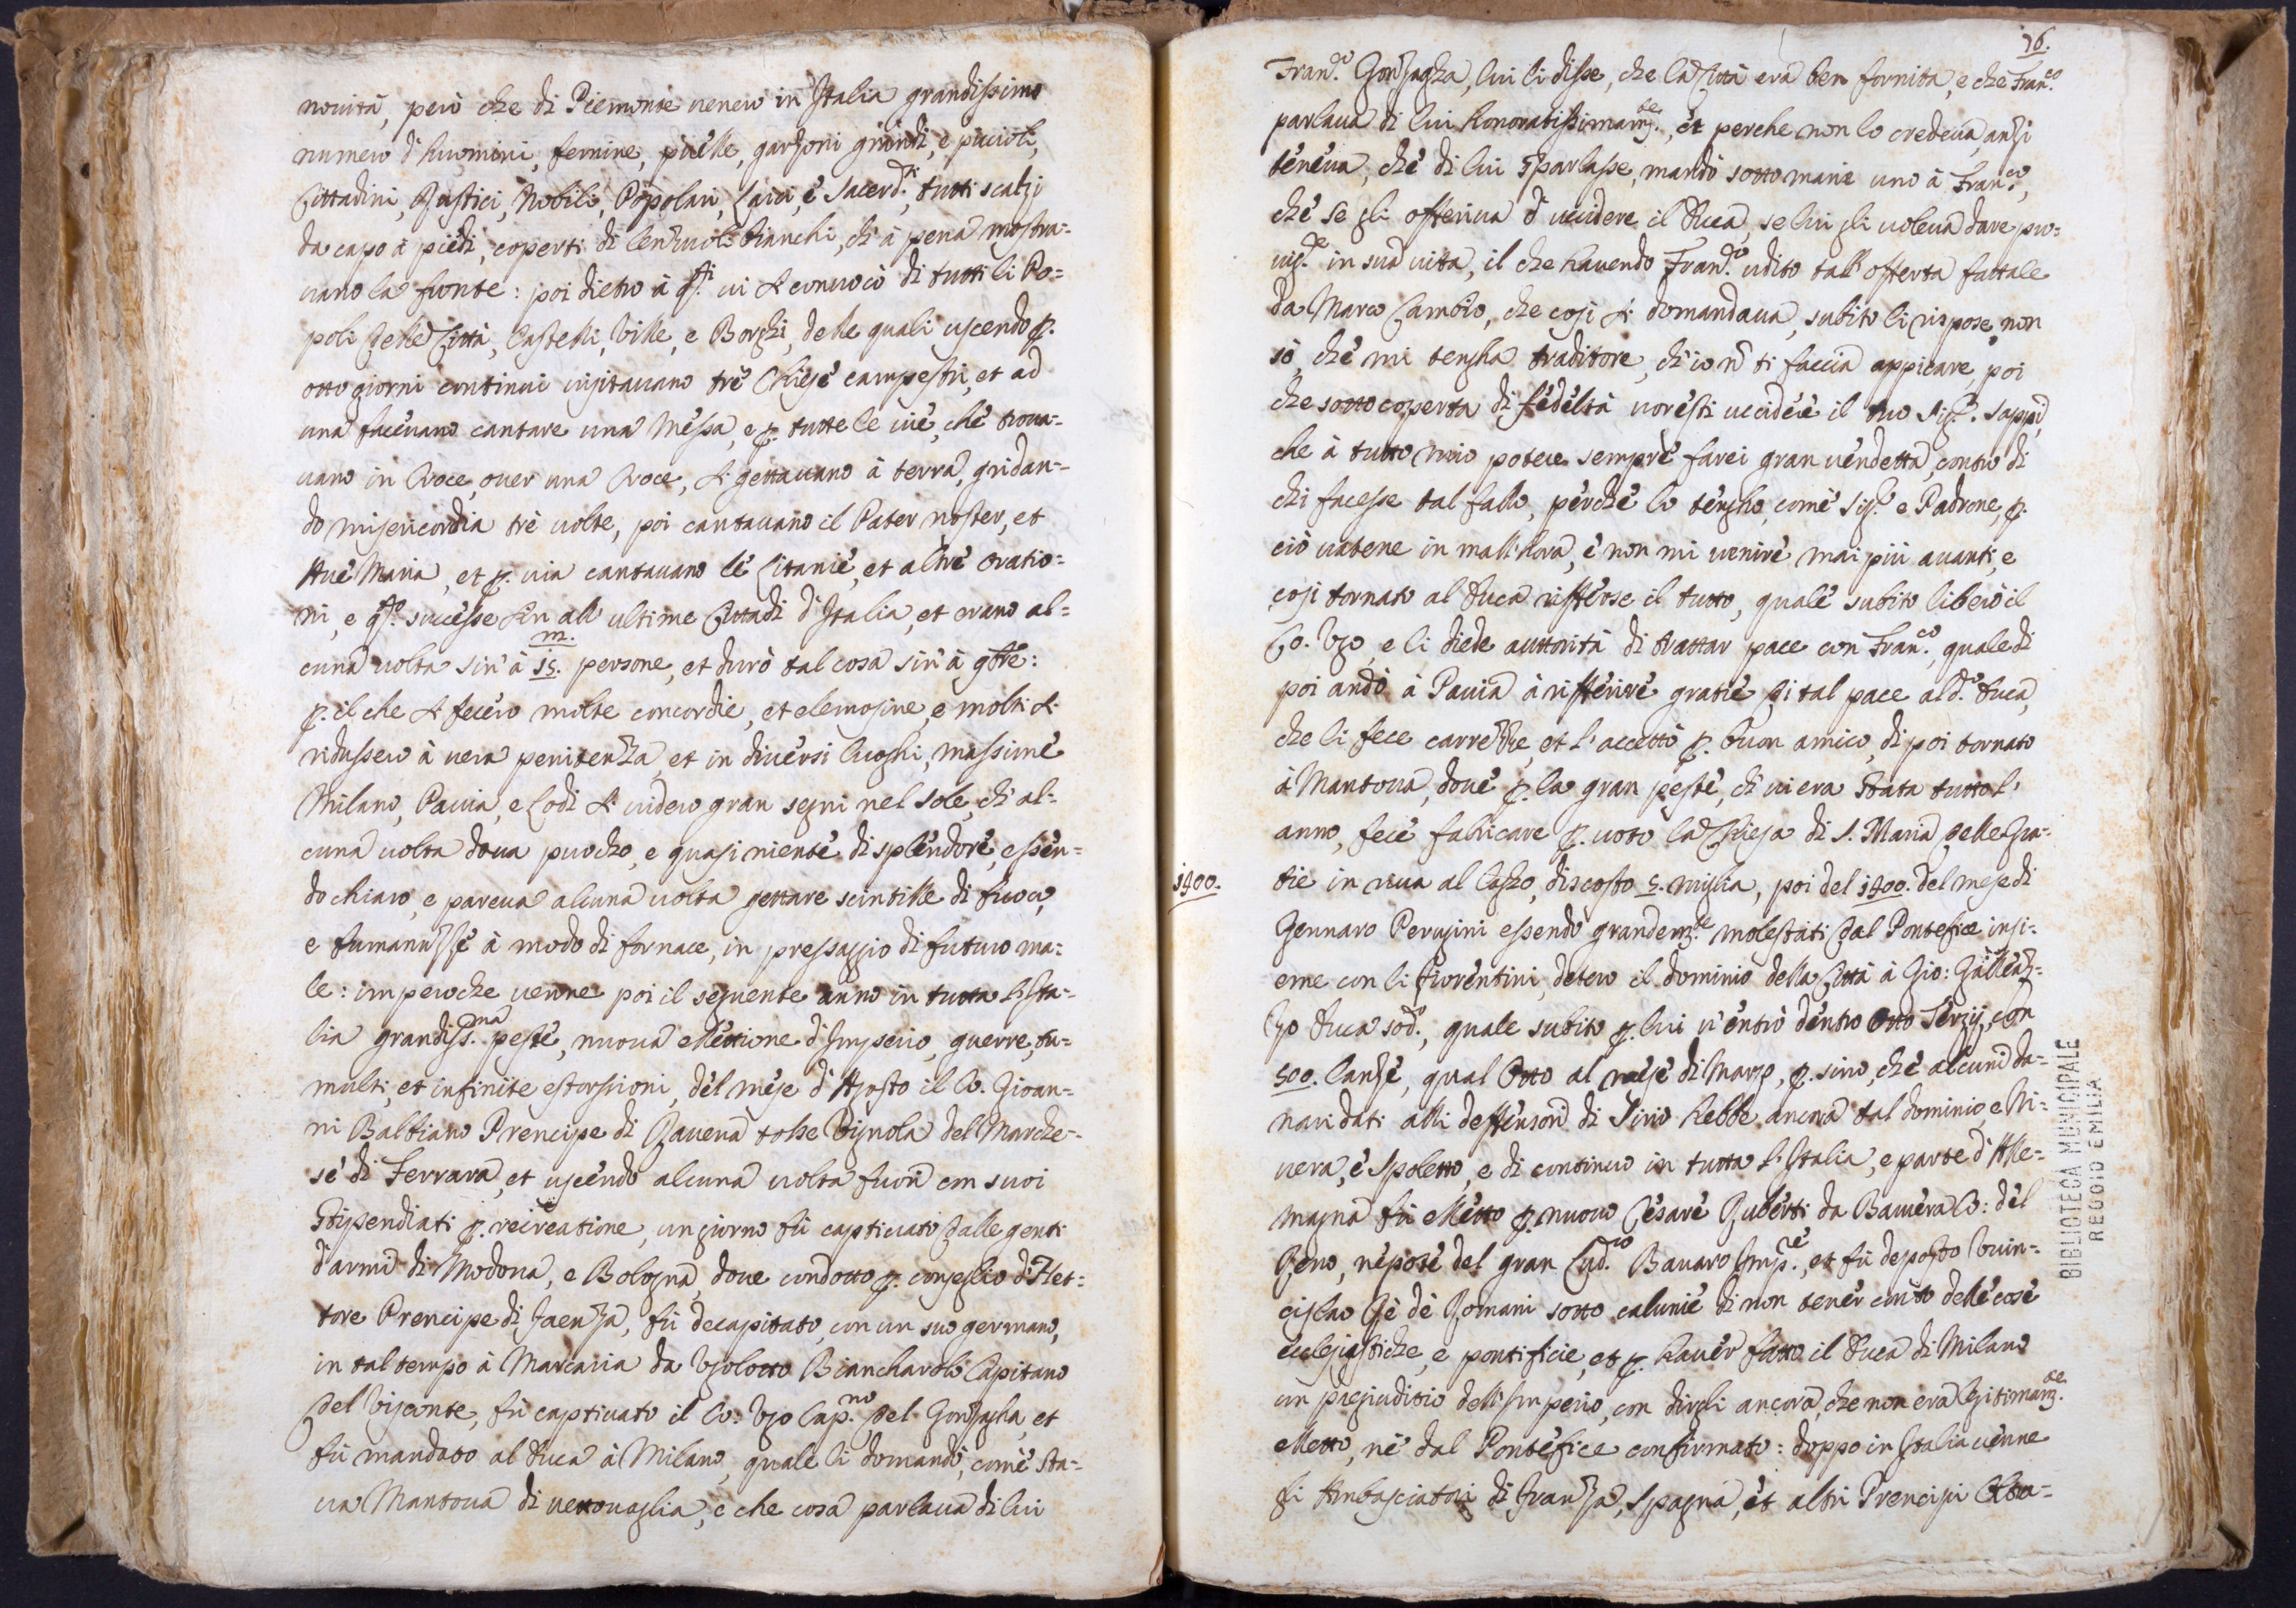 nouità, però che di Piemonte uenero in Italia grandissimo
numero d'huomini, femine, puelle, garzoni grandi, e piccioli,
Cittadini, Rustici, Nobili, Popolari, Laici, e Sacerd.ti, tutti scalzi
da capo à piedi, coperti di lenzuoli bianchi, ch'à pena mostra-
uano la fronte: poi dietro à q.sti ui si conuocò di tutti li Po-
poli delle Città, Castelli, Ville, e Borghi, delle quali uscendo p.
otto giorni continui uisitauano trè Chiese campestri, et ad
una faceuano cantare una Messa, e p. tutte le uie, che troua-
uano in Croce, ouer una Croce, si gettauano à terra, gridan-
do misericordia trè uolte, poi cantauano il Pater noster, et
Aue Maria, et p. uia cantauano le Litanie, et altre oratio-
ni, e q.sto successe sin all'ultime Cittadi d'Italia, et erano al-
cuna uolta sin'à 15.m. persone, et durò tal cosa sin'à 9bre:
p. il che si fecero molte concordie, et elemosine, e molti si
ridussero à uera penitenza, et in diuersi luoghi, massime
Milano, Pauia, e Lodi si uidero gran segni nel Sole, ch'al-
cuna uolta daua puocho, e quasi niente di splendore, essen-
do chiaro, e pareua alcuna uolta gettare scintille di fuoco,
e fumanizzè à modo di fornace, in pressaggio di futuro ma-
le: imperoche uenne poi il seguente anno in tutta l'Ita-
lia grandiss.ma peste, nuoua elettione d'Imperio, guerre, tu-
multi, et infinite estorsioni, del mese d'Agosto il Co. Gioan-
ni Balbiano Prencipe di Rauena tolse Vignola del Marche-
se di Ferrara, et uscendo alcuna uolta fuori con suoi
Stipendiati p. recreatione, un giorno fù captiuato dalle genti
d'armi di Modona, e Bologna, doue condotto p. conseglio d'Het-
tore Prencipe di Faenza, fù decapitato, con un suo germano,
in tal tempo à Marcaria da Vgolotto Biancharolo Capitano
del Visconte, fù captiuato il Co. Vgo Cap.no del Gonzagha, et
fù mandato al Duca à Milano, quale li domandò, come sta-
ua Mantoua di uettouaglia, e che cosa parlaua di lui
76.
Fran.co Gonzagha, lui li disse, che la Città era ben fornita, e che Fran.co
parlaua di lui honoratissimam.te, et perche non lo credeua, anzi
teneua, che di lui sparlasse, mandò sotto manie uno à Fran.co,
che se gli offeriua d'uccidere il Duca, se lui gli uoleua dare pro-
uig.de in sua uitta, il che hauendo Fran.co udito tall'offerta fattale
da Marco Cambio, che cosi si domandaua, subito li rispose, non
sò, che mi tengha traditore, ch'io nō ti faccia appicare, poi
che sotto coperta di fedeltà uoresti uccidere il tuo Sig.re. Sappi,
che à tutto mio potere sempre farei gran uendetta contro di
chi facesse tal fallo, perche lo tengho, come Sig.re e Padrone, p.
ciò uatene in mall'hora, e non mi uenire mai più auanti, e
cosi tornato al Duca rifferse il tutto, quale subito liberò il
Co. Vgo, e li diede auttorità di trattar pace con Fran.co, quale di
poi andò à Pauia à rifferire gratie di tal pace al d.o Duca,
che li fece carrezze, et l'accettò p. buon amico, di poi tornato
à Mantoua, doue p. la gran peste, ch'ui era stata tutto l'
anno, fece fabricare p. uoto la Chiesa di S. Maria delle Gra-
1400.
tie in riua al Lagho, discosto 5. miglia, poi del 1400. del mese di
Gennaro Perugini essendo grandem.te molestati dal Pontefice insi-
eme con li Fiorentini, detero il dominio della Città à Gio: Galleaz-
zo Duca sod.o, quale subito p. lui u'entrò dentro Otto Terzij, con
500. lanze, qual Otto al mese di Marzo, p. sino, che alcuni da-
nari dati alli deffensori di Sirio hebbe ancora tal dominio, e Ni-
uera, e Spoletto, e di continuo in tutta l'Italia, e parte d'Alle-
magna fù eletto p. nuouo Cesare Ruberti da Bauiera Co: del
Reno, nepote del gran Lud.co Bauaro Imp.re, et fù deposto Vuin-
cislao Rè dè Romani sotto calunie di non tener conto delle cose
ecclesiastiche, e pontificie, et p. hauer fatto il Duca di Milano
un pregiuditio dell'Imperio, con dirgli ancora, che non era legitimam.te
eletto, ne dal Pontefice confirmato: doppo in Italia uenne
gli Ambasciatori di Franza, Spagna, et altri Prencipi Oltra-
BIBLIOTECA MUNICIPALE
REGGIO EMILIA